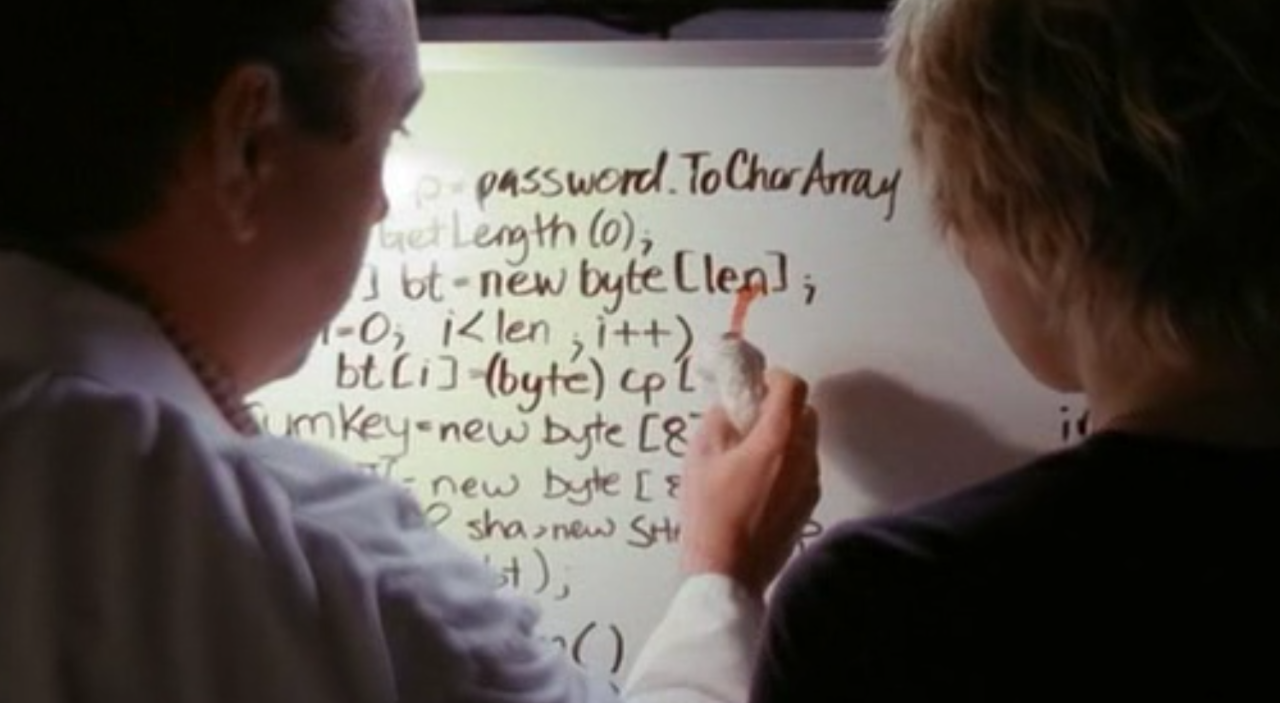 p= password.ToCharArray
GetLength (0);
] bt = new byte [len];
i=0; i< len ; i++)
bt [i] = (byte) cp [
umKey = new byte [8]
= new byte [8
sha = new SH
bt );
()